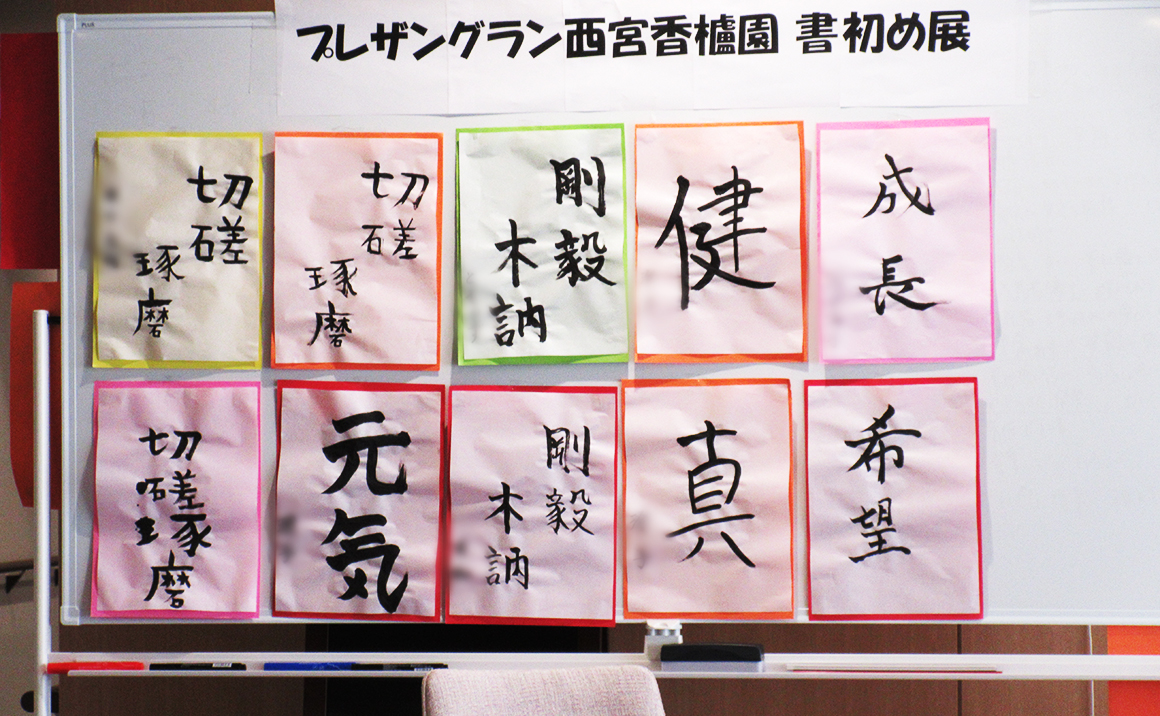 プレザングラン西宮香櫨園 書初め展
切磋
琢磨
切磋
琢磨
剛毅
木訥
健
成長
切磋琢磨
元気
剛毅
木訥
真
希望
PLUS